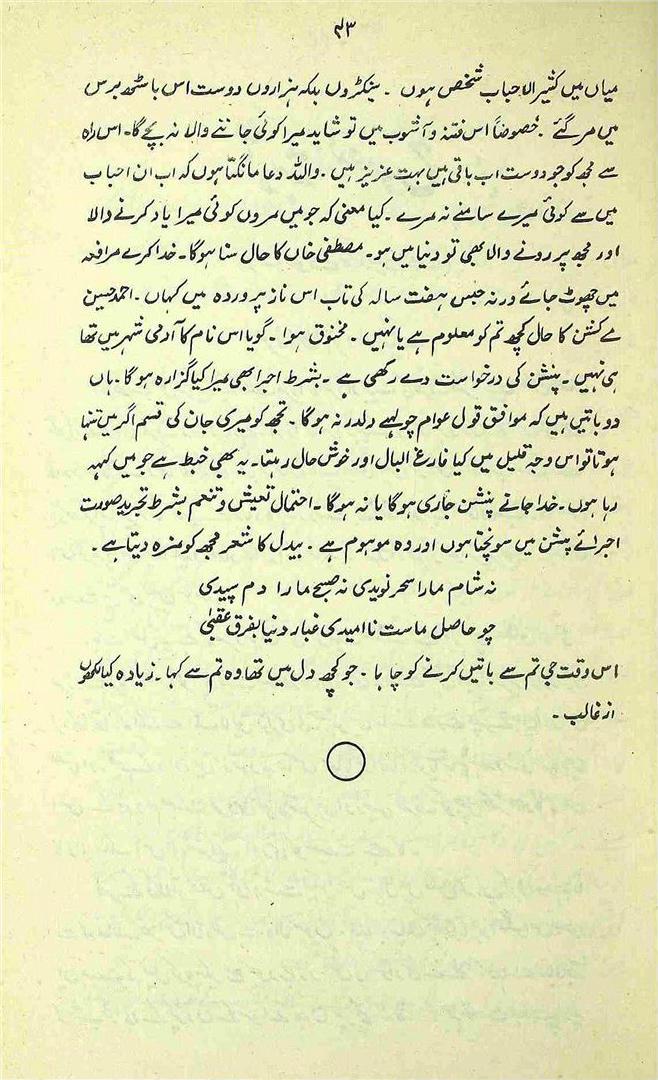 ۴۳
میاں میں کثیر الاحباب شخص ہوں ۔ سینکڑوں بلکہ ہزاروں دوست اس باسٹھ برس
میں مر گئے ۔ خصوصاً اس فتنہ و آشوب میں تو شاید میرا کوئی جاننے والا نہ بچے گا۔ اس راہ
سے مجھ کو جو دوست اب باقی ہیں بہت عزیز ہیں ۔ واللہ دعا مانگتا ہوں کہ اب ان احباب
میں سے کوئی میرے سامنے نہ مرے ۔ کیا معنی کہ جو میں مروں کوئی میرا یاد کرنے والا
اور مجھ پر رونے والا بھی تو دنیا میں ہو۔ مصطفیٰ خاں کا حال سنا ہوگا۔ خدا کرے مرافعہ
میں چھوٹ جائے ورنہ حبس ہفت سالہ کی تاب اس ناز پروردہ میں کہاں ۔ احمد حسین
مے کشن کا حال کچھ تم کو معلوم ہے یا نہیں ۔ مخنوق ہوا ۔ گویا اس نام کا آدمی شہر میں تھا
ہی نہیں ۔ پنشن کی درخواست دے رکھی ہے ۔ بشرط اجرا بھی میرا کیا گزارہ ہوگا ۔ ہاں
دو باتیں ہیں کہ موافق قول عوام چولہے دلدر نہ ہوگا ۔ تجھ کو میری جان کی قسم اگر میں تنہا
ہوتا تو اس وجہ قلیل میں کیا فارغ البال اور خوش حال رہتا۔ یہ بھی خبط ہے جو میں کہہ
رہا ہوں ۔ خدا جانے پنشن جاری ہوگا یا نہ ہوگا ۔ احتمال تعیش و تنعم بشرط تجرید صورت
اجرائے پنشن میں سونچتا ہوں اور وہ موہوم ہے ۔ بیدل کا شعر مجھ کو مزہ دیتا ہے ۔
نہ شام مارا سحر نویدی نہ صبح مارا دم سپیدی
چو حاصل ماست ناامیدی غبار دنیا بفرق عقبیٰ
اس وقت جی تم سے باتیں کرنے کو چاہا ۔ جو کچھ دل میں تھا وہ تم سے کہا ۔ زیادہ کیا لکھوں
از غالب ۔